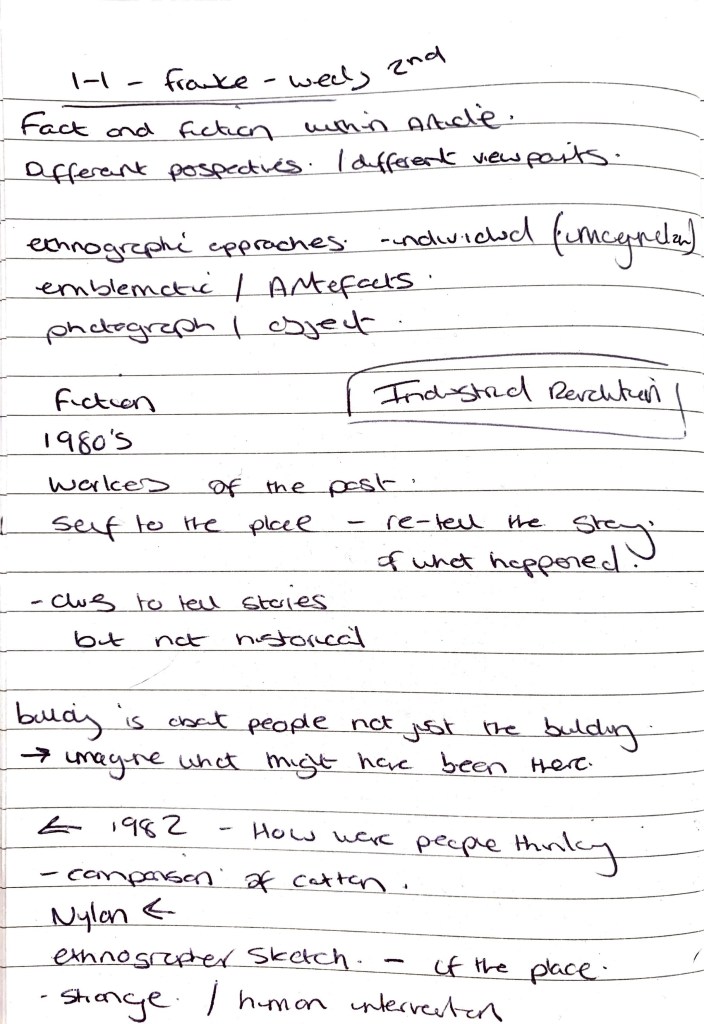 1-1 - franke - week 2nd
Fact and fiction within Article.
Different pospectives. / different viewpoints.
ethnographic approaches. - individual (imagination)
emblematic / Artefacts.
photograph / object.
fiction
Industrial Revolution
1980's
workers of the past.
self to the place - re-tell the story.
of what happened!
- clues to tell stories
but not historical
building is about people not just the building.
→ imagine what might have been there.
← 1982 - How were people thinking
- comparison of cotton.
Nylon ←
ethnographer sketch. - of the place.
- strange. / human intervention